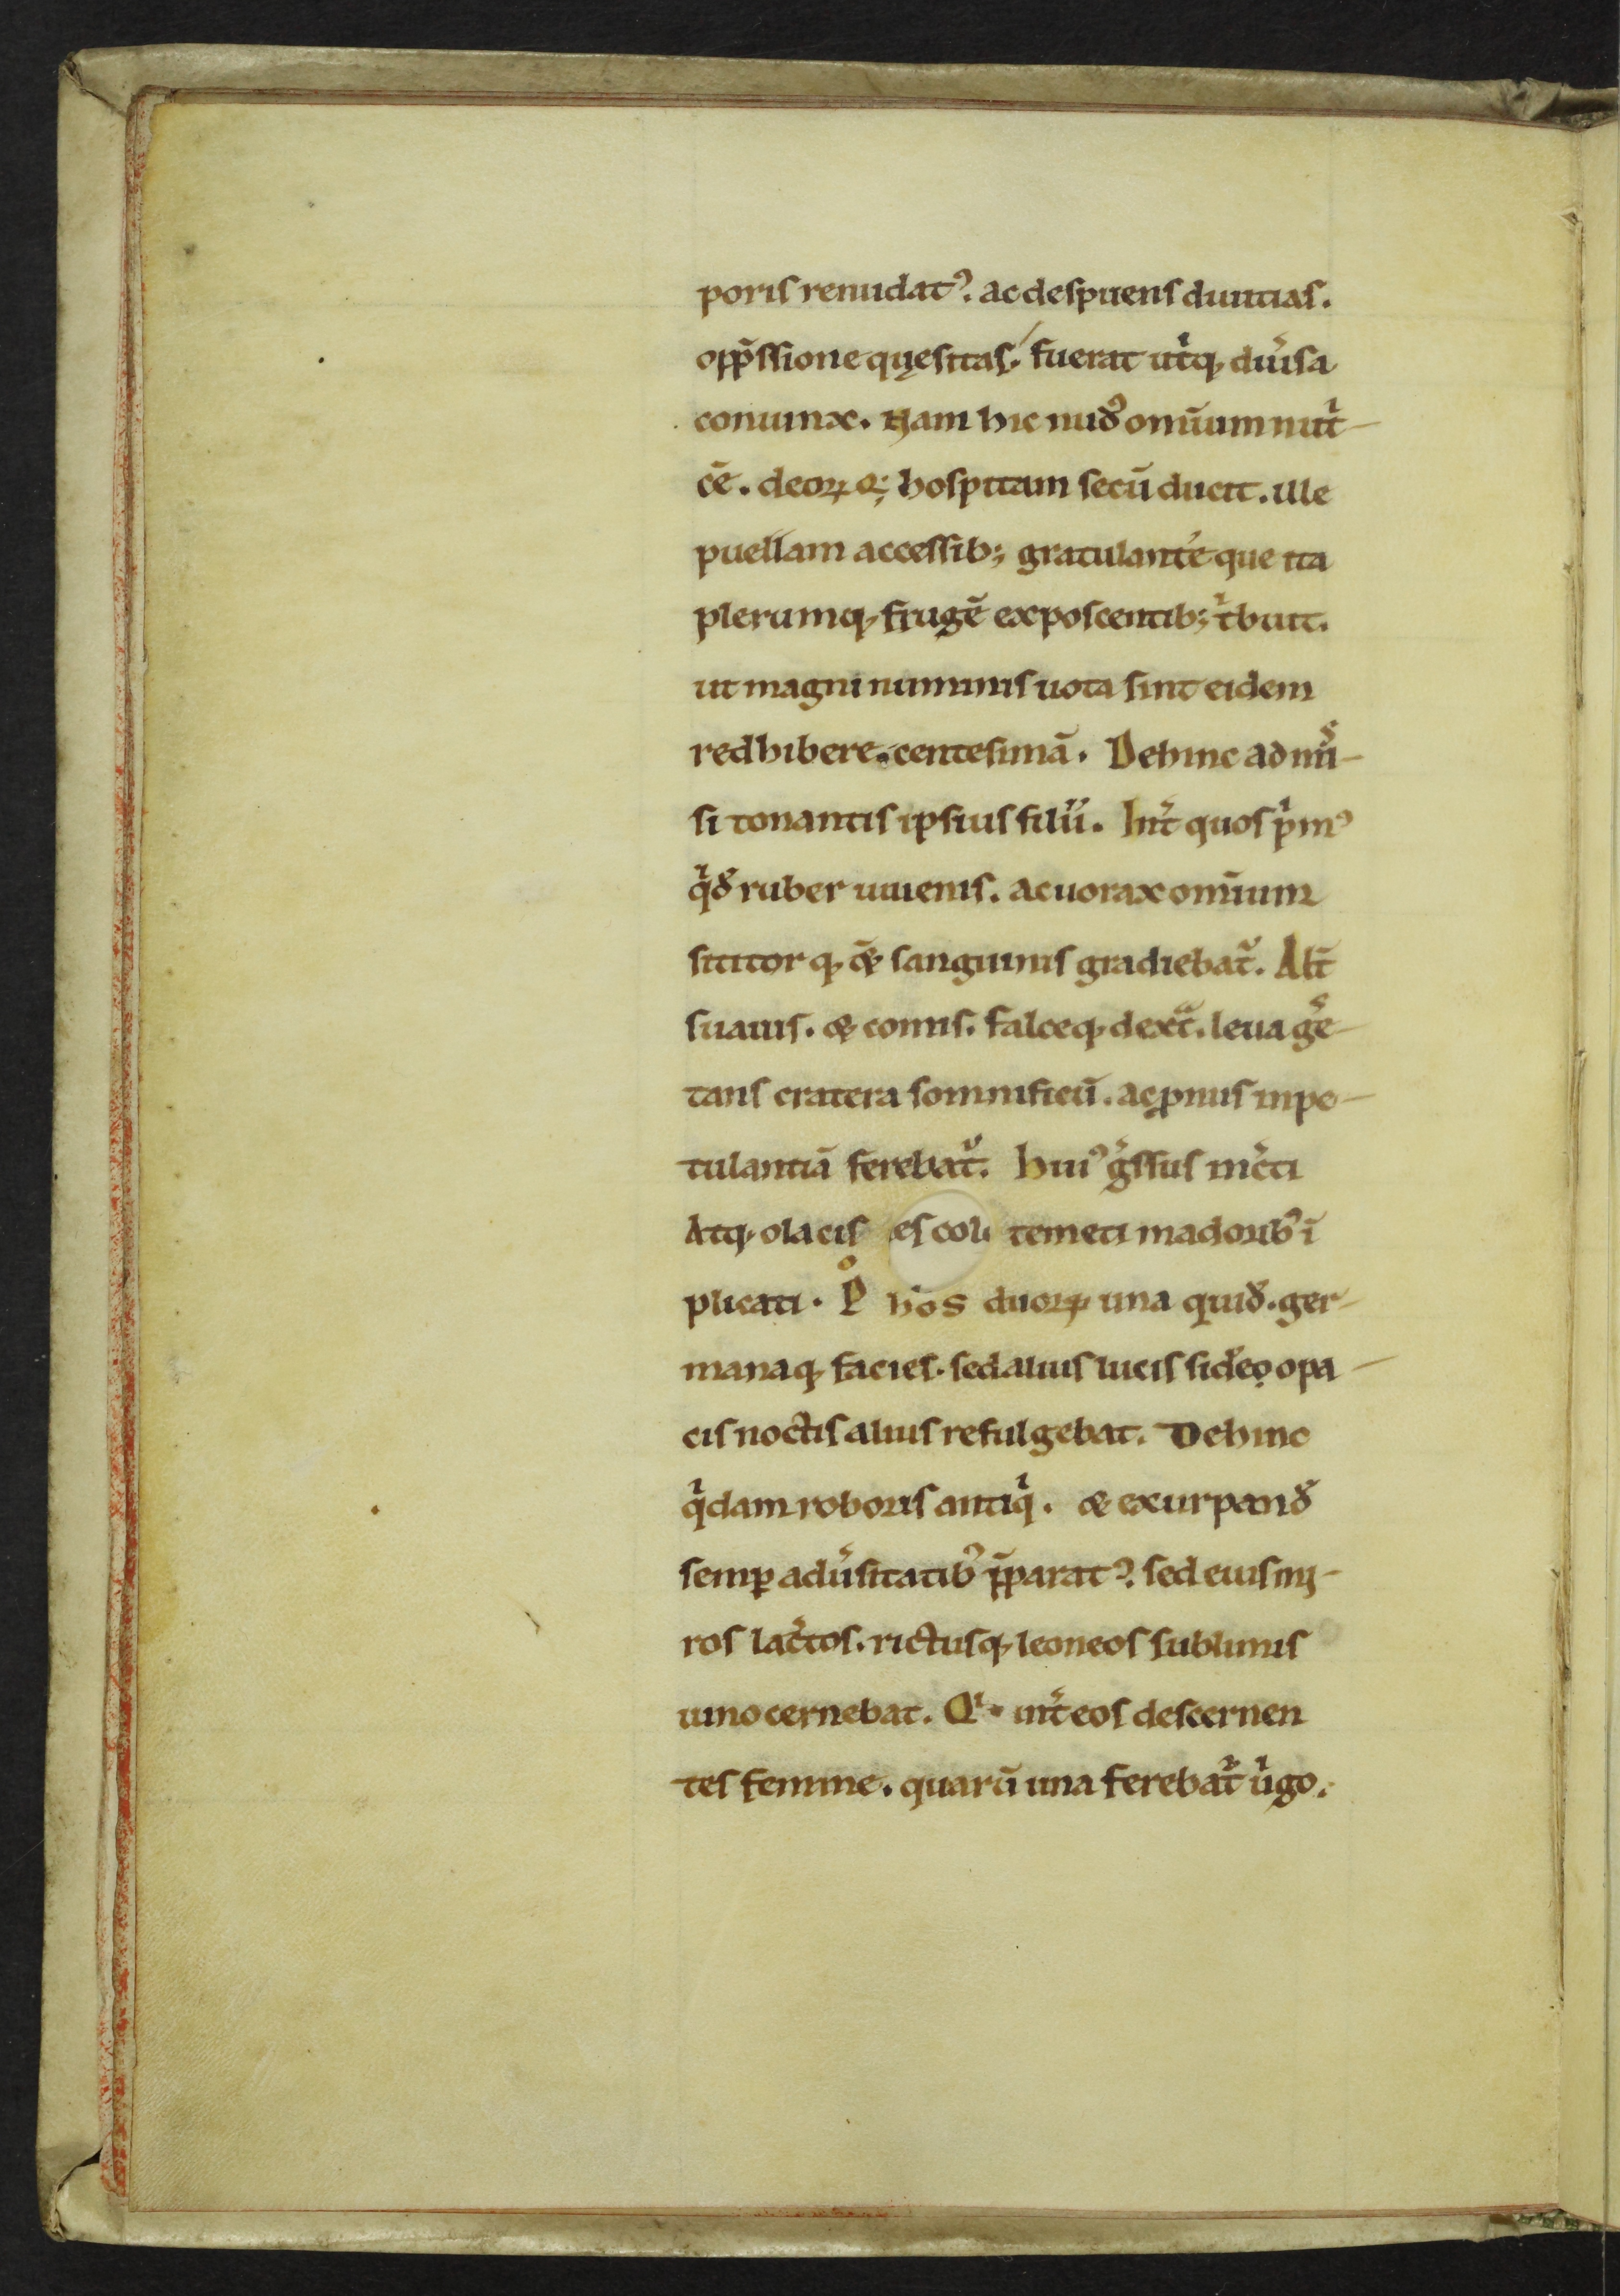 poris renudatꝰ. ac despuens diuitias.
opp̄ssione quęsitas. fuerat utͥq; diu̾sa
coniunx. Nam hic nudꝰ omīum nutͥ-
cē. deoꝝ q; hospitam secū ducit. ille
puellam accessib; gratulant̾e que ita
plerumq; frugē exposcentib; tͥbuit.
ut magni numinis uota sint eidem
redhibere. centesimā. Dehinc admi̾-
si tonantis ipsius filii. Int̾ quos pͥmꝰ
qͥdē ruber iuuenis. ac uorax omīum
sititor q; & sanguinis gradiebatᷣ. Alt̾
suauis. & comis. falceq; dextͣ. leua ge̾-
tans cratera somnificū. ac ꝓnus in pe-
tulantiā ferebatᷣ. huiꝰ g̾ssus inc̾ti
Atq; olacis es coli temeti madoribꝰ ī
plicati. Pº hos duoꝝ una quidē. ger-
manaq; facies. sed alius lucis sid̾e. opa-
cis noctis alius refulgebat. Dehinc
qͥdam roboris antiqͥ. & exurpandē
semꝑ adu̾sitatibꝰ p̄paratꝰ. sed eius mi-
ros lac̾tos. rictusq; leoneos sublimis
iuno cernebat. Qͥ. int̾ eos descernen
tes femine. quarū una ferebatᷣ uͥgo.